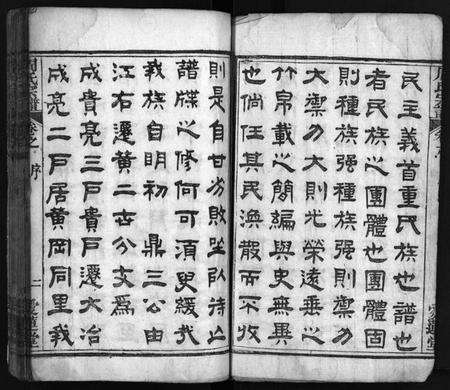 民主義首重民族也譜也
者民族之團體也團體固
則種族強種族強則禦力
大禦力大則光榮遠垂之
竹帛載之簡編與史無異
也倘任其民渙散而不收
則是自甘劣敗坐以待亡
譜牒之修何可須臾緩哉
我族自明初鼎三公由
江右遷黃二世分支為
成貴亮三戶貴戶遷大冶
成亮二戶居黃岡同里我
氏宗譜
卷之
序
二
愛蓮堂